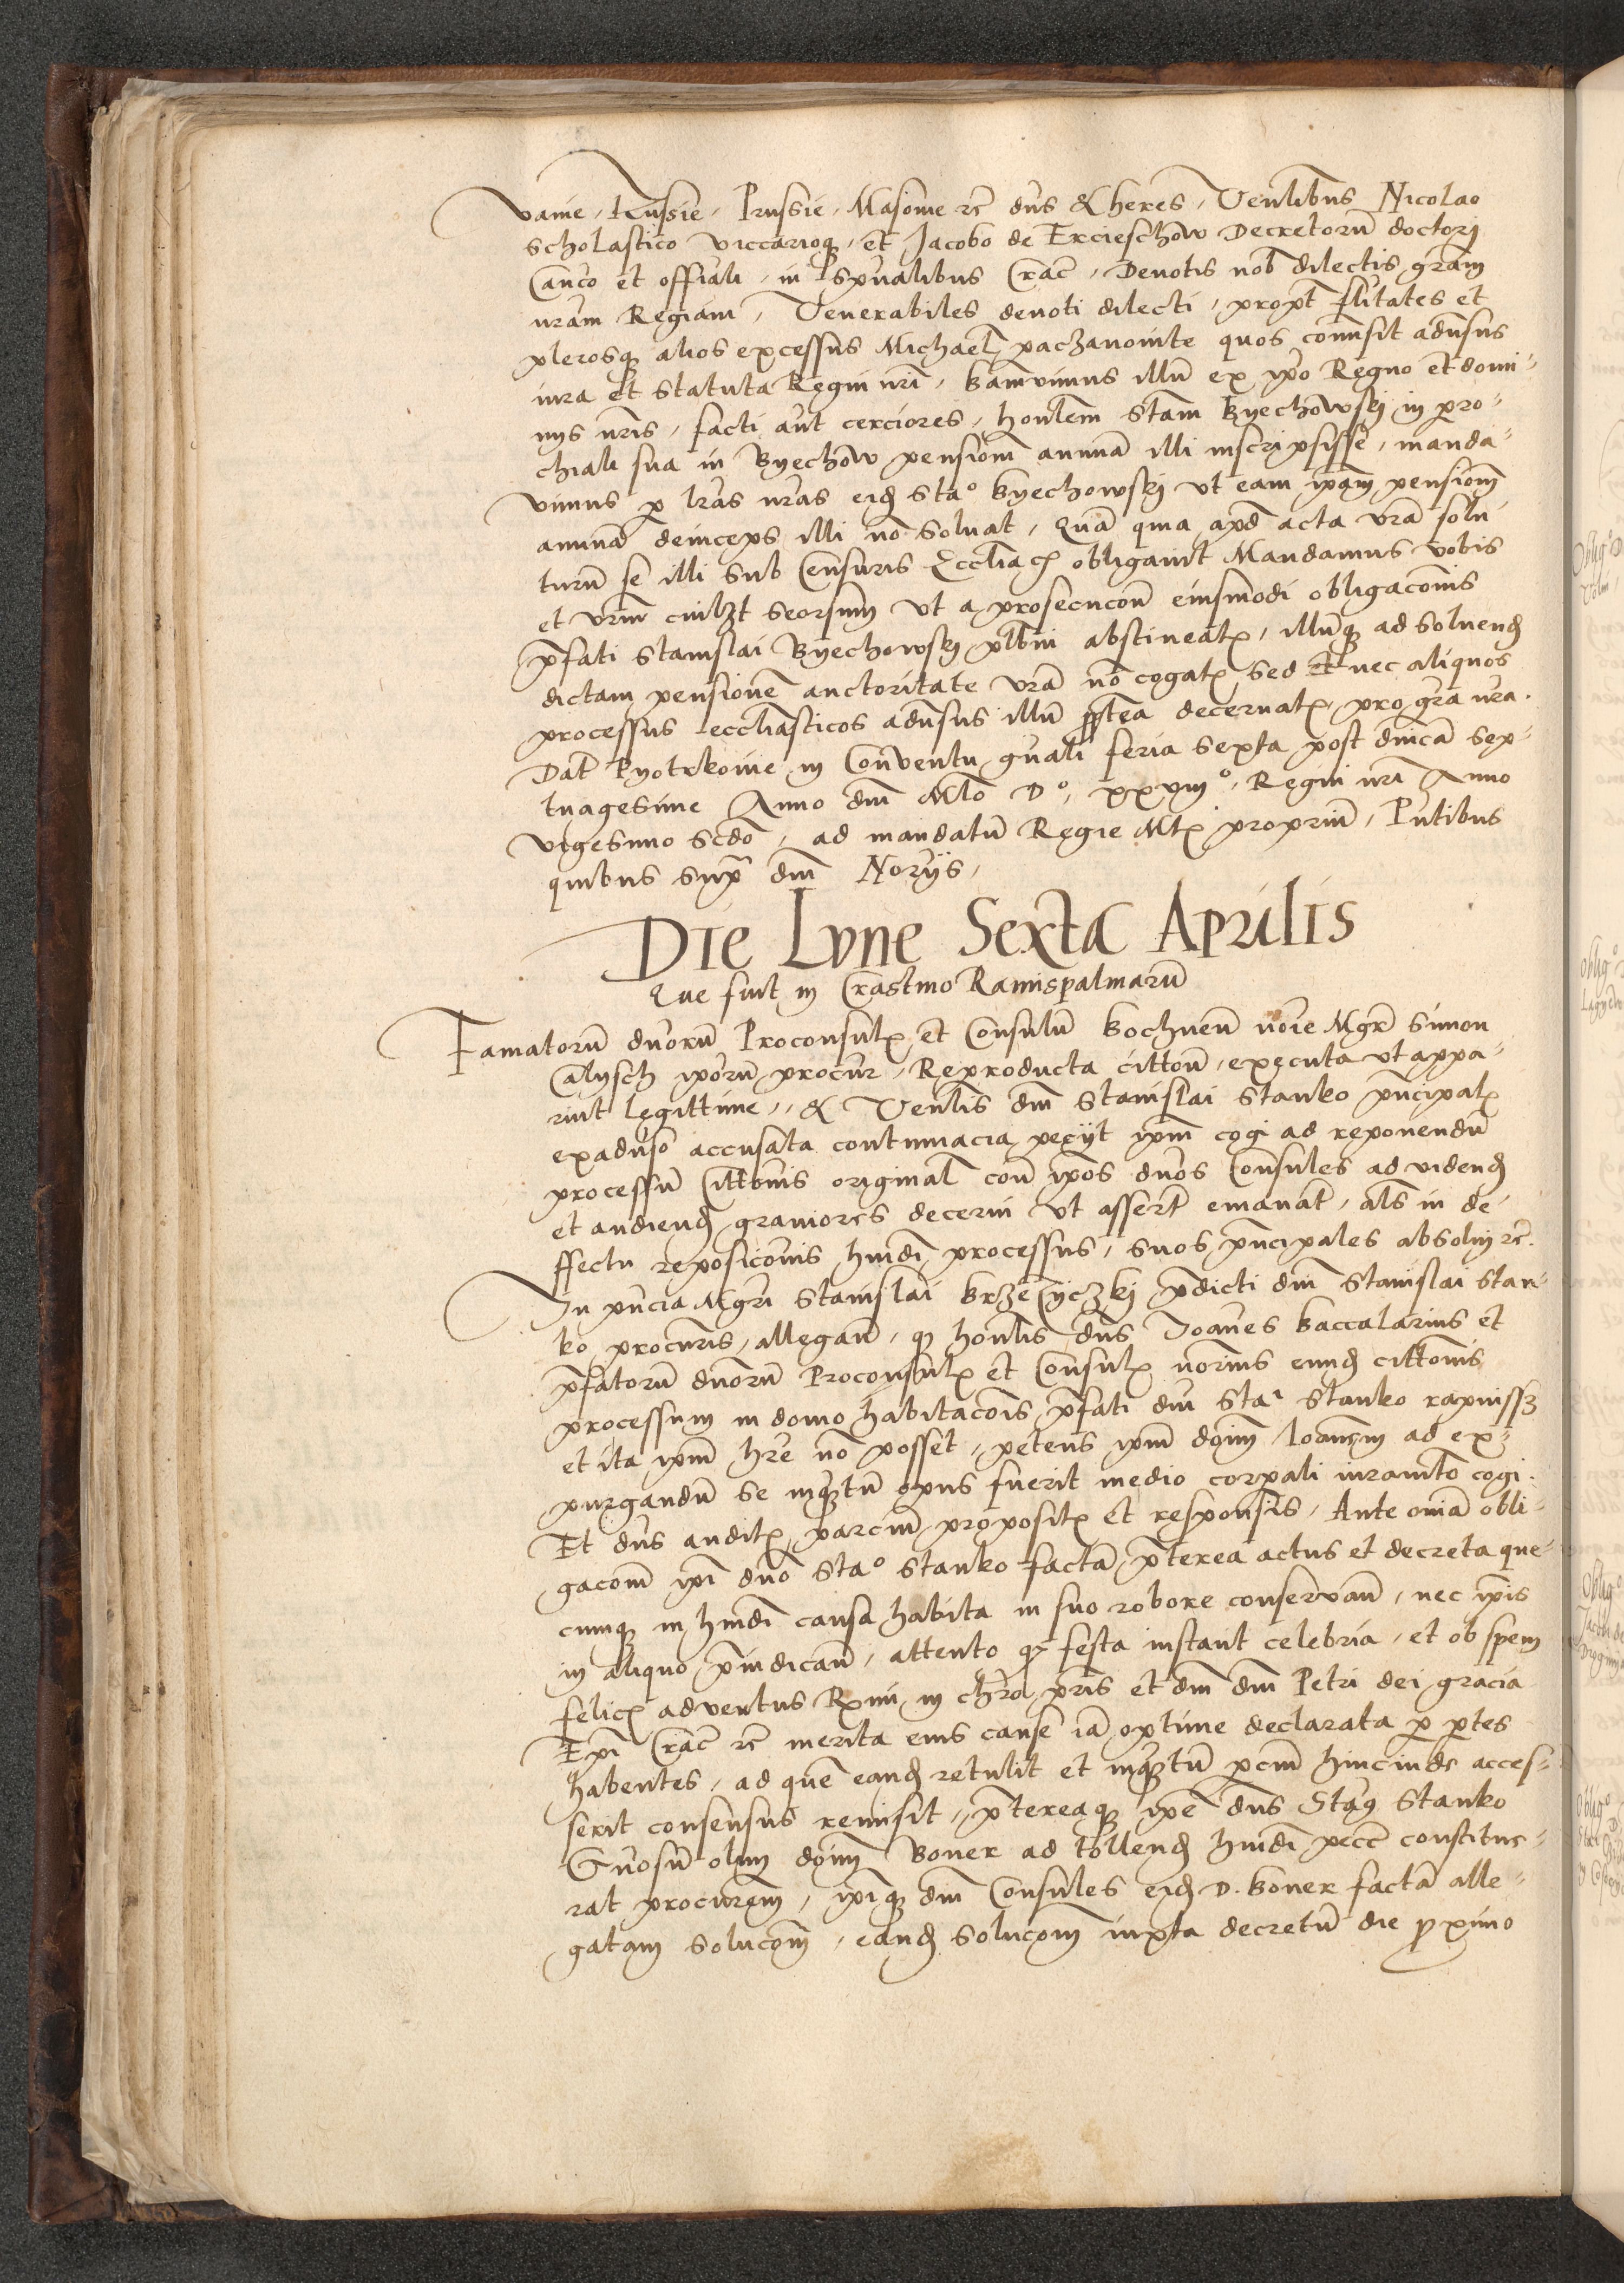 vanie, Russie, Prussie, Masouie rc̃ dns̃ & heres, Venlibus Nicolao
scholastico viccarioq₃, et Jacobo de Ercieschow Decretorũ doctorj
Canco et offiali, in Spũalibus Crac̃, Deuotis nob̃ dilectis grãm
nrãm Regiam, Venerabiles deuoti dilecti, propt̃ et
plerosq₃ alios excessus Michael paczanouite quos comisit aduersus
iura et statuta Regni nri, banniuimus illũ ex ipo Regno et domi-
nijs nris, facti aut cerciores, honlem Stam Byechowskj in paro-
chiali sua in Byechow pensionẽ annuã illi inscripsisse, manda-
uimus p lras nras eid Sta° Byechowskj vt eam ipam pensionẽ
annuã deinceps illi nõ soluat, Quã quia apd acta vrã solu
turũ se illi sub Censuris Ecclia obligauit Mandamus vobis
et vrm cuilzt seorsum vt a prosecucõne eiusmodi obligacõnis
p̃fati Stanislai Byechowskj plbni abstineat, illũq₃ ad soluend
dictam pensionẽ auctoritate vrã nõ cogat, sed et nec aliquos
processus eccliasticos aduersus illũ p̃tea decernat, pro gra nra.
Dat̃ Pyotrkouie in Conuentu gñali feria sexta post dnicã Sep-
tuagesime Anno dni Mlo D°, xxviii°, Regni nri Anno
vigesimo scdo, ad mandatũ Regie Mtis propriũ, Pntibus
quibus supͣ dni Norijs,
Die Lvne Sexta Aprilis
Que fuit in Crastino Ramispalmarũ
Famatorũ dnorũ Proconsul et Consulũ Bochnen noie Mgr̃ Simon
Calysch iporũ procur, Reproducta cittõne, executa vt appa-
ruit legittime, & Venlis dni Stanislai Stanko pncipal
exaduso accusata contumacia pecijt ipm cogi ad reponendũ
processũ Cittõnis original con ipos dnos Consules ad vidend
et audiend grauiores decerni vt assert emanat, als in de-
ffectu reposicõnis hmdi processus, suos pncipales absolui rc̃.
In pñcia Mgri Stanislai p̃dicti dni Stanislai Stan-
ko procuris, allegañ, q₃ honlis dns̃ Joanes baccalarius et
p̃fatorũ dnorũ Proconsul et Consul norius eund cittõnis
processum in domo habitacõis p̃fati dni Sta¹ Stanko rapuissz
et ita ipm hre nõ posset, petens ipm dnm Ioanem ad ex-
purgandũ se inqtũ opus fuerit medio corpali iuramto cogi.
Et dns̃ audit parciũ proposit et responsis, Ante omã obli-
gacõnẽ ipi dno Sta° Stanko factã p̃terea actus et decreta que-
cumq₃ in hmdi causa habita in suo robore conseruañ, nec ipis
in aliquo p̃iudicañ, attento q₃ festa instant celebria, et ob spem
felic aduentus Rmi in chro pris et dni dni Petri dei gracia
Epi Crac̃ rc̃ merita eius cause iã optime declarata p ptes
habentes, ad quẽ eand retulit et inqtũ pciũ hincinde acces-
serit consensus remisit, p̃tereaq₃ ipe dns̃ Sta9 Stanko
Gnosũ olim dnm Boner ad tollend hmdi pecc̃ constitue-
rat procurem, ipiq₃ dni Consules eid D. Boner factã alle-
gatam solucõnẽ, eand solucõnẽ iuxta decretũ die proximo